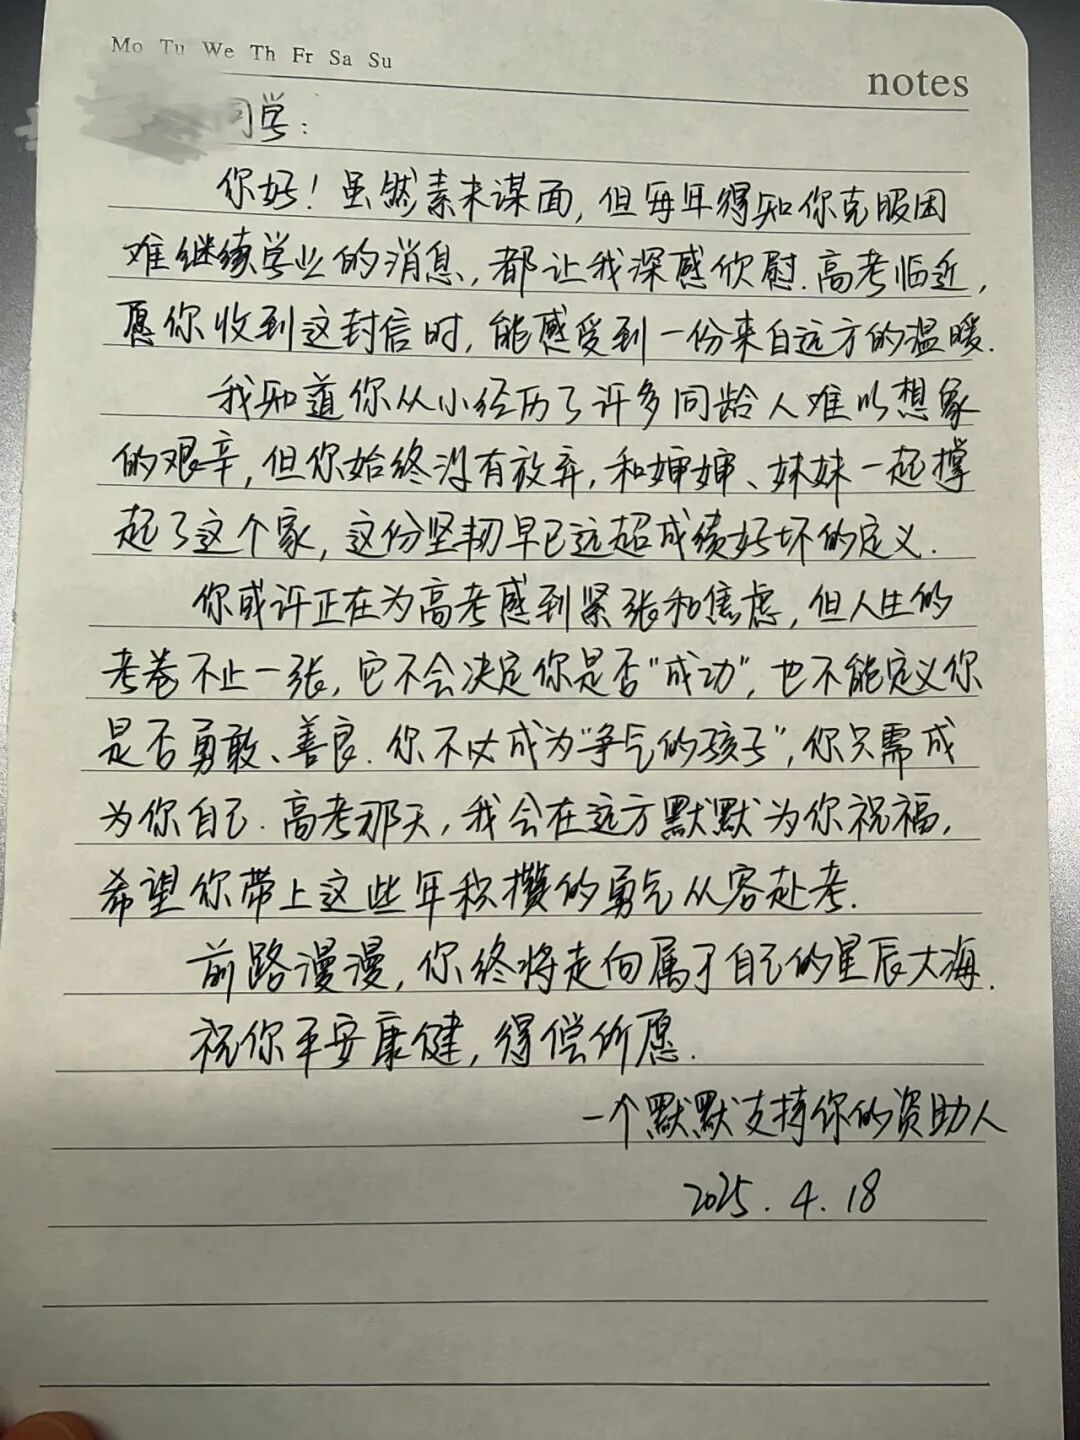 Mo Tu We Th Fr Sa Su
notes
同学：
你好！虽然素未谋面，但每年得知你克服困
难继续学业的消息，都让我深感欣慰.高考临近，
愿你收到这封信时，能感受到一份来自远方的温暖.
我知道你从小经历了许多同龄人难以想象
的艰辛，但你始终没有放弃，和婶婶、妹妹一起撑
起了这个家，这份坚韧早已远超成绩好坏的定义.
你或许正在为高考感到紧张和焦虑，但人生的
考卷不止一张，它不会决定你是否“成功”，也不能定义你
是否勇敢、善良.你不必成为“争气的孩子”，你只需成
为你自己.高考那天，我会在远方默默为你祝福，
希望你带上这些年积攒的勇气从容赴考.
前路漫漫，你终将走向属于自己的星辰大海.
祝你平安康健，得偿所愿.
一个默默支持你的资助人
2025.4.18